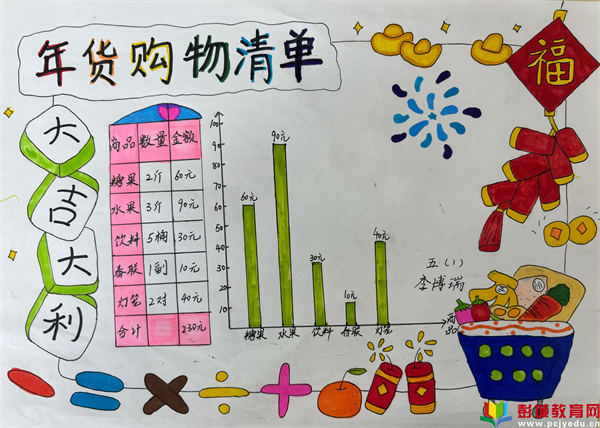 年货购物清单
大
吉
大
利
福
商品 数量 金额
糖果 2斤 60元
水果 3斤 90元
饮料 5桶 30元
春联 1副 10元
灯笼 2对 40元
合计 230元
100
90
80
70
60
50
40
30
20
10
60元
90元
30元
10元
40元
糖果 水果 饮料 春联 灯笼
商品
五(1)
李博瑞
彭州教育网
www.pcjyedu.cn